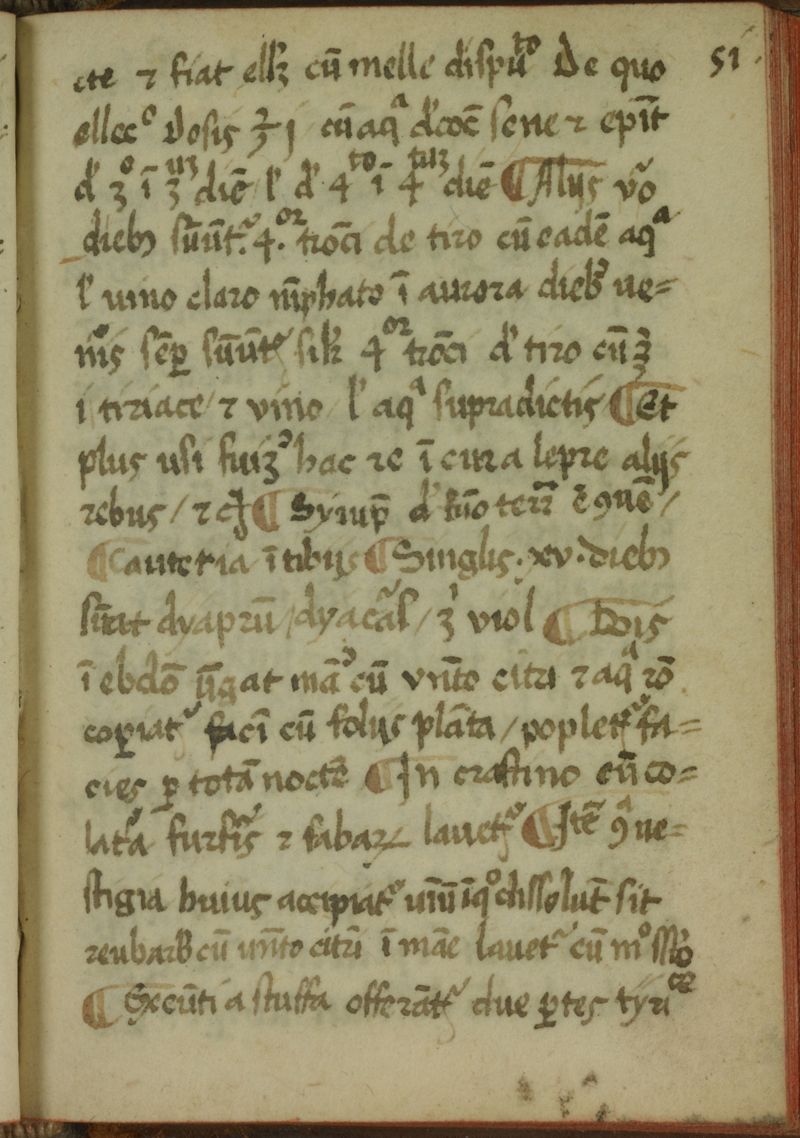 51
cte ⁊ fiat ellꝫ cū melle dispūto De quo
ellcco Dosis ℥ j cū aqa dcoc̄ sene ⁊ epit̄
d' ʒo ī ʒuʒ diē l' d' 4to ī 4tuʒ diē ¶ Alijs vo
dieb sūūt. 4.or troci de tiro cū eadē aqa
l' vino claro īphato ī aurora dieb ue=
nis sēp sūūt 4or troci d' tiro cū ʒ
i tiriace / ⁊ vino / l' aqa supradictis ¶ Et
plus usi hac re ī cura lepre alijs
rebus / ⁊ ¶ Syrup d' fūo terr ē ꝯuē /
¶ Cauteria ī tibijs ¶ Singlis . xv . dieb
sūat dyaprū / dyacas / ʒ viol ¶ Bis
ī ebdō ūgat cū vnto citri ⁊ aqa ro
copiat faci cū folijs plāta / poplet fa=
cies p totā noctē ¶ In crastino cū co=
latā furfis ⁊ fabaꝝ lauet ¶ Itē ꝯa ue=
stigia huius accipiat dissolut sit
reubarb cū unto citri ī māe lauet cū
¶ Exeūti a stuffa offerāt due ptes tyri